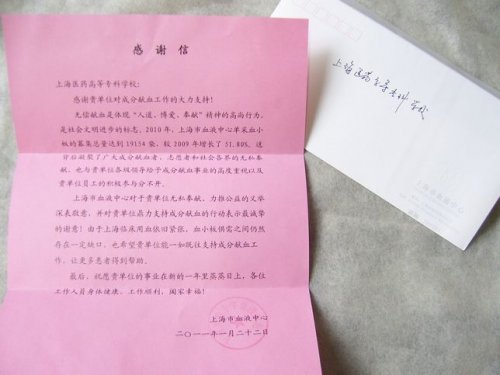 感谢信
上海医药高等专科学校:
感谢贵单位对成分献血工作的大力支持!
无偿献血是体现“人道、博爱、奉献”精神的高尚行为,
是社会文明进步的标志。2010年,上海市血液中心单采血小
板的募集总量达到19154袋,较2009年增长了51.80%。这
背后凝聚了广大成分献血者、志愿者和社会各界的无私奉
献,也与贵单位各级领导给予成分献血事业的高度重视以及
贵单位员工的积极参与分不开。
上海市血液中心对于贵单位无私奉献、力推公益的义举
深表敬意,并对贵单位鼎力支持成分献血的行动表示最诚挚
的谢意!由于上海临床用血依旧紧张,血小板供需之间仍然
存在一定缺口,也希望贵单位能一如既往支持成分献血工
作,让更多患者得到帮助。
最后,祝愿贵单位的事业在新的一年里蒸蒸日上,各位
工作人员身体健康、工作顺利、阖家幸福!
上海市血液中心
二〇一一年一月二十二日
上海医药高等专科学校
上海市血液中心